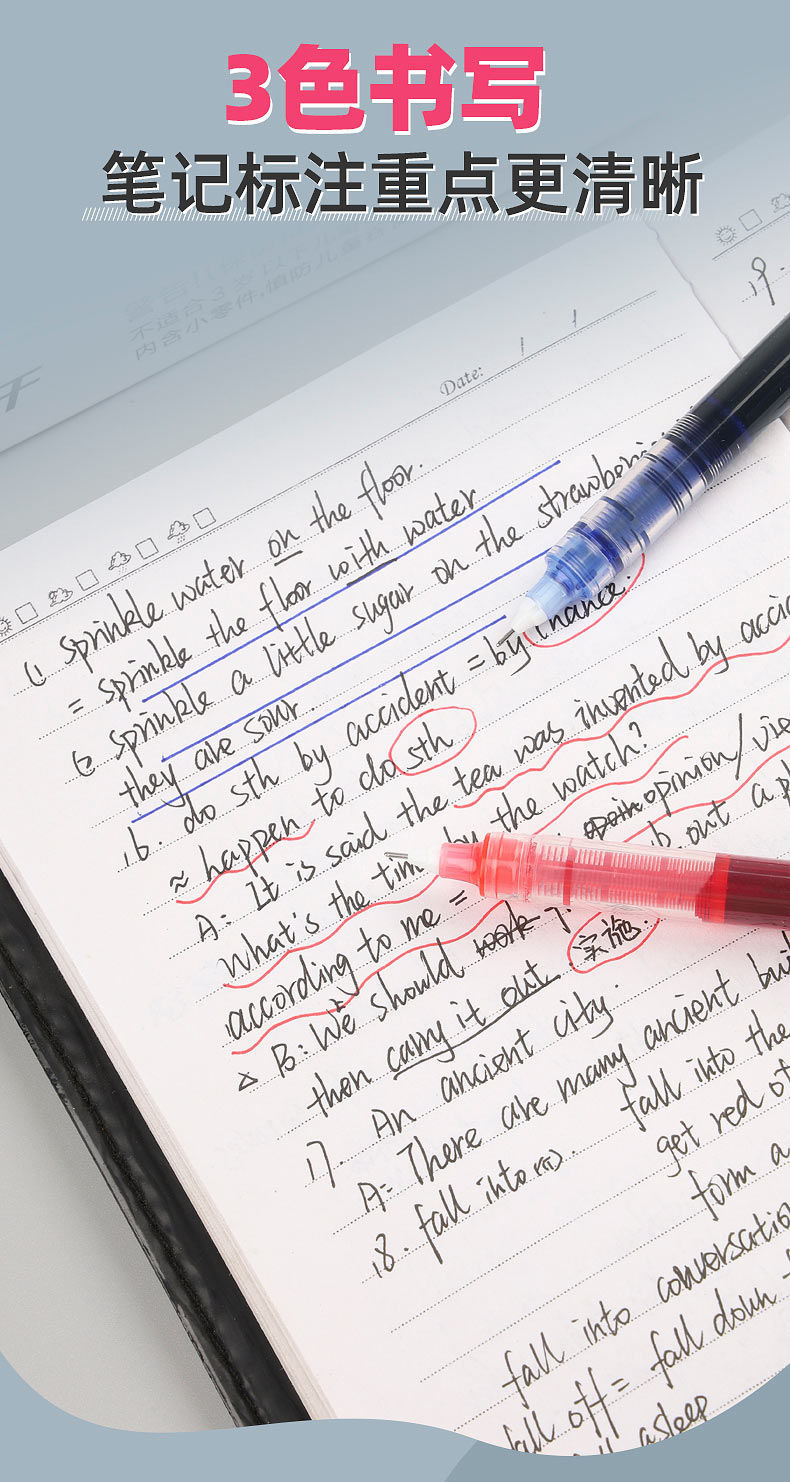 3色书写
笔记标注重点更清晰
不适合3岁以下儿童
内含小零件,慎防儿童
Date:
(1) sprinkle water on the floor.
= sprinkle the floor with water
(2) sprinkle a little sugar on the strawberri
they are sour.
16. do sth by accident = by chance.
≈ happen to do sth
A: It is said the tea was invented by accid
What's the tim by the watch?
according to me = opinion/vie
b. out a p
△ B: We should 实施.
then carry it out
17. An ancient city.
A: There are many ancient bui
18. fall into (vi). fall into the
get red of
form a
fall into conversatio
fall off = fall down
asleep